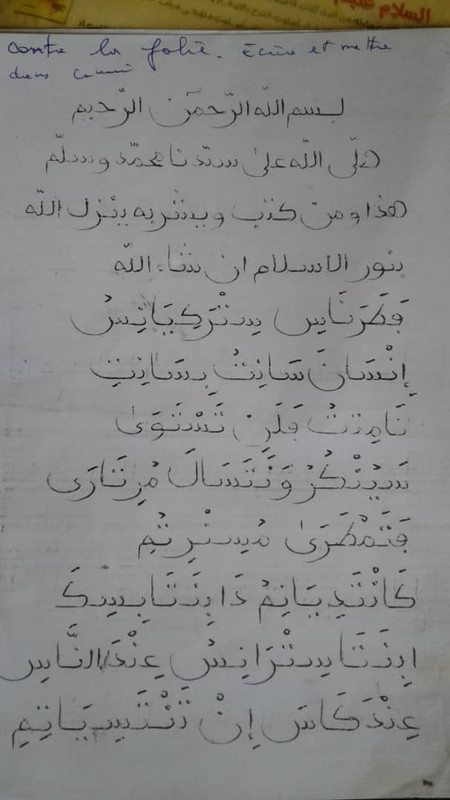 السلام عليكم
contre la folie. Ecrire et mettre
dans
بسم الله الرحمن الرّحيم
صلّى الله على سيّدنا محمّد وسلّم
هذا ومن كتب ويشربه ينزل الله
بنور الاسلام ان شاء الله
فَطَرَنَاسِ سِتْرَكِيَانِسُ
إِنْسَانَ سَانِتُ بِسَانِتِ
نَامِتتُ فَلَنِ تَسْتَوَى
سَيُنْكُرُ وَنْتَسَالَ مُرِتَارَى
فَتَمْطَرَى مُيسْرِتُمِ
كَانْتَدِيَانِمُ ذَابِنَتَايِسِكَ
ابِنَتَاسِتْرَانِسُ عِنْدَ النَّاسِ
عِنْدَكَاسَ إِنْ تَنْتَسِيَاتِمِ